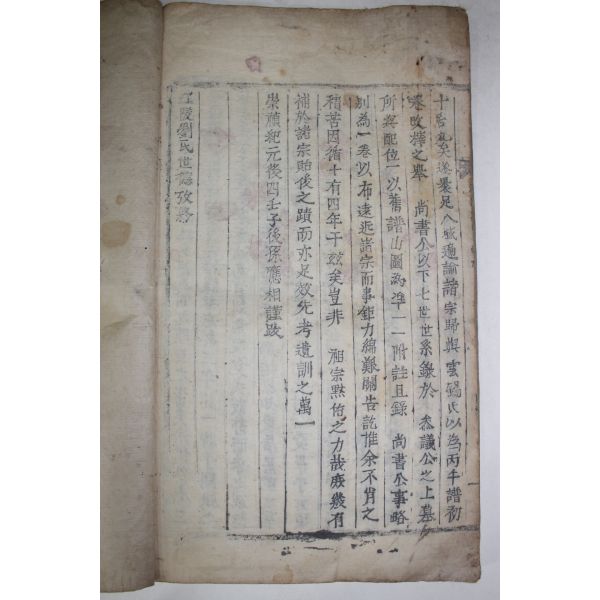 十居九矣遂暴足八域遍諭諸宗歸與雲錫氏以為丙午譜初
改梓之擧 尚書公以下七世世系錄於 叅議公之上墓
所與配位一以舊譜山圖為準一一附註且錄 尚書公事略
別為一卷以布遠近諸宗而事鉅力綿艱關告訖惟余不肖之
稽苦因循十有四年于玆矣豈非 祖宗黙佑之力哉庶幾有
補於諸宗貽後之蹟而亦足效先考遺訓之萬一
崇禎紀元後四壬子後孫應相謹跋
江陵劉氏世譜跋終